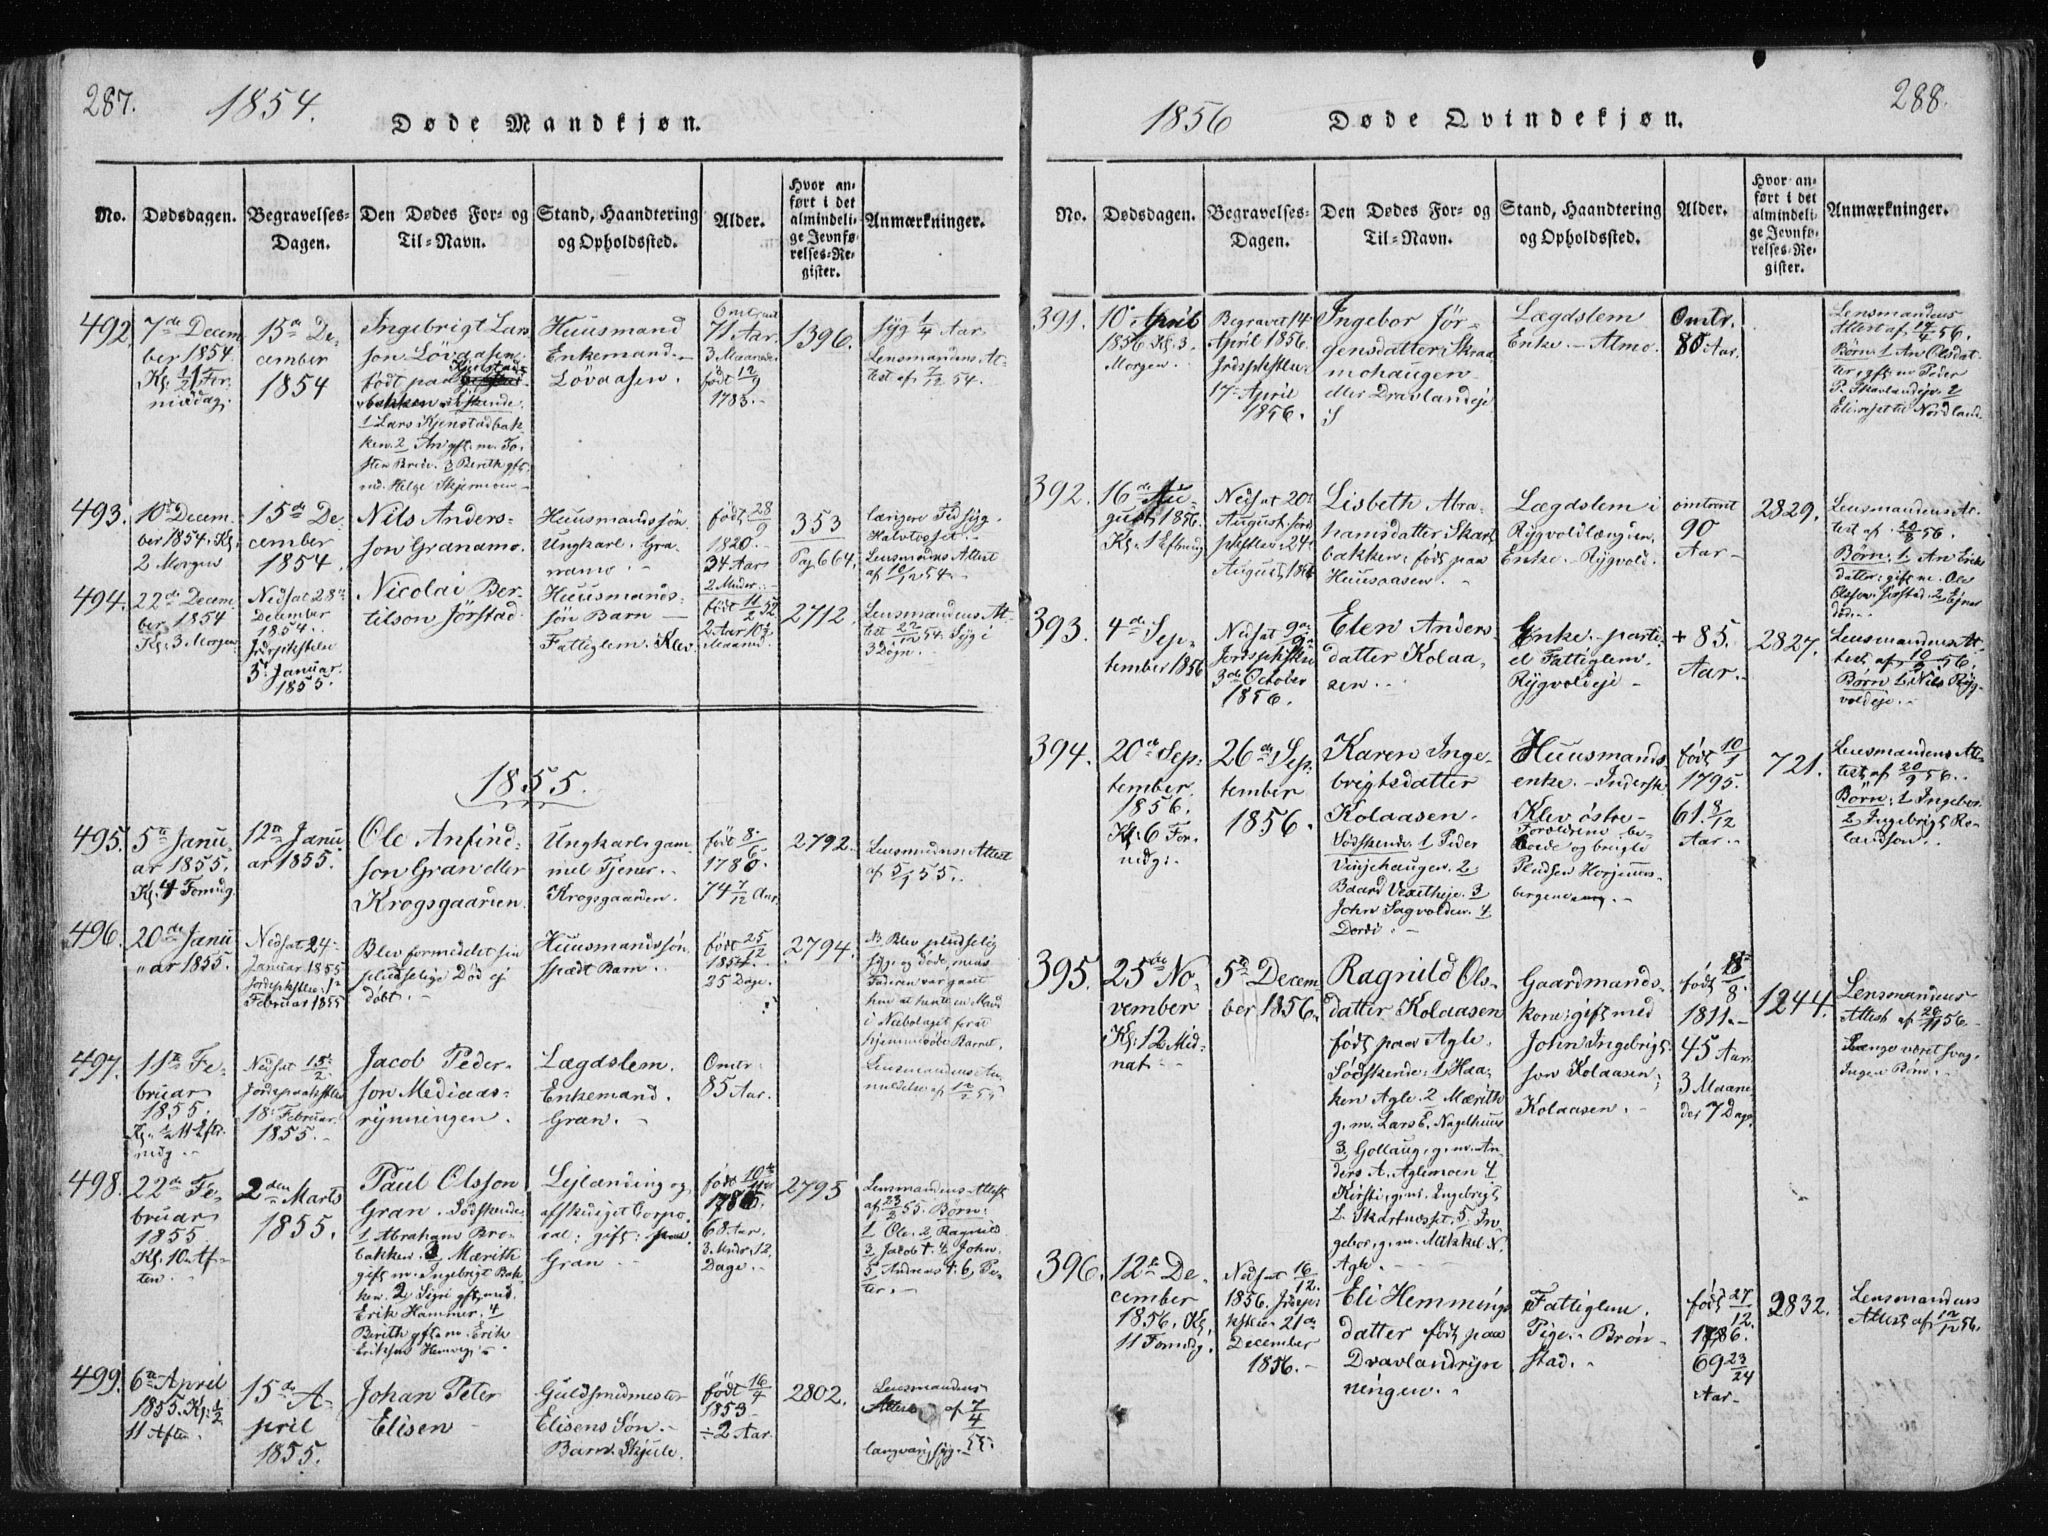 287.
1854.
Døde Mandkjøn.
No.
Dødsdagen.
Begravelses-
Dagen.
Den Dødes For- og
Til-Navn.
Stand, Haandtering
og Opholdssted.
Alder.
Hvor an-
ført i det
almindeli-
ge Jevnfø-
relses-Re-
gister.
Anmærkninger.
492.
7de Decem
ber 1854
Kl. 1/2 11 For
middag.
15de De-
cember
1854
Ingebrigt Lars
son Lövaasen
født paa
1 Lars Kjenstadbak-
ken. 2 An gft. m. To-
sten Brede. 3 Berith gft.
md. Helge Skjemoen
Huusmand
Enkemand.
Lövaasen.
Omtrent
71 Aar.
3 Maaneder
født 12/9
1783.
1396.
Syg 1/4 Aar
Lensmandens At-
test af 7/12 54.
493.
10de Decem
ber 1854. Kl.
2 Morgen
15de De-
cember
1854.
Nils Anders-
son Granamo.
Huusmandssön
Ungkarl. Gra-
namo.
født 28/9
1820.
34 Aar
2 Mnder.
353
Pag 664.
længere Tid syg.
Lensmandens Attest
af 10/12 54.
494.
22de Decem
ber 1854
Kl. 3 Morgen
Nedsat 28de
December
1854.
Jordspkstelse
5te Januar.
1855.
Nicolai Ber-
tilson Jörstad.
Huusmands-
sön Barn
Fattiglem. Klev
født 11/2 52
2 Aar 10 1/2
Maand
2712
Lensmandens At-
test 22/12 54. Syg i
3 Døgn.
1855.
495.
5te Janu-
ar 1855.
Kl. 4 Formdg.
12te Janu
ar 1855.
Ole Anfind-
son Gran eller
Krogsgaarden.
Ungkarl gam-
mel Tjener.
Krogsgaarden.
født 8/6
1780
74 7/12 Aar.
2792.
Lensmandens Attest
af 5/1 55.
496.
20de Janu
ar 1855.
Nedsat 24
Januar 1855
Jordspkstelse 12
Februar 1855
Blev formedelst sin
pludselige Død ej
döbt.
Huusmandssön
spædt Barn.
født 25/12
1854.
25 Dage.
2794.
NB Blev pludselig
syg og døde, mens
Faderen var gaaet
hen at hente en Mand
i Nabolaget for at
hjemmedöbe Barnet.
497.
11te Fe-
bruar
1855.
Kl. 1/2 11 Eftr.
mdg.
Nedsat 15/2
Jordspaakstelse
18 Februar.
1855.
Jacob Peder-
son Mediaas-
rynningen.
Lægdslem.
Enkemand.
Gran.
Omtr.
85 Aar.
Lensmandens An-
meldelse af 12/2 55
498.
22de Fe-
bruar
1855
Kl. 10 Af-
ten.
2den Marts
1855.
Paul Olsson
Gran. Södskende.
1 Abraham Bro-
bakken. 3 Mærith
gift m. Ingebrigt Bak-
ken. 2 Siri gft. med
Erik Hammer. 4
Berith gft. m. Erik
Lejlænding og
afskediget Corpo-
ral; gift;
Gran
født 10de
1786.
68 Aar.
3 Mndr. 12.
Dage.
2795
Lensmandens Attest
af 23/2 55. Börn:
1 Ole. 2 Ragnild
3 Jacob † 4 John.
5 Andreas † 6. Pe-
ter.
499.
6te April
1855. Kl. 1/2
11 Aften.
15de A-
pril
1855.
Johan Peter
Elisen
Guldsmedmester
Elisens Søn.
Barn. Skjule.
født 16/4
1853
÷ 2 Aar.
2802.
Lensmandens
Attest af 7/4
55.
langvarig syg.
288.
1856
Døde Qvindekjøn.
No.
Dødsdagen.
Begravelses-
Dagen.
Den Dødes For- og
Til-Navn.
Stand, Haandtering
og Opholdssted.
Alder.
Hvor an-
ført i det
almindeli-
ge Jevnfø-
relses-Re-
gister.
Anmærkninger.
391.
10 April
1856 Kl. 3.
Morgen.
Begravet 14
April 1856.
Jrdspkstelse
17 April
1856.
Ingebor Jör-
gensdatter Skraa
mohaugen
eller Dravlandseje
Lægdslem
Enke. Almo.
Omtr.
80 Aar.
Lensmandens
Attest af 14/4 56.
Börn: 1 An Olsdat-
ter, gft. m. Peder
P. Skavlandeje. 2
Eli rejst til Nordland.
392.
16de Au-
gust 1856.
Kl. 1 Eftmdg
Nedsat 20
August Jord
pkstelse 24
August 1856
Lisbeth Abra-
hamsdatter Skart
bakken; født paa
Huusaasen.
Lægdslem i
Rygvoldlægden.
Enke. Rygvold.
omtrent
90
Aar
2829.
Lensmandens At-
test af 20/8 56.
Börn: 1. An Eriks
datter; gift m. Ole
Olsson Jörstad. 2 Ejnar
død.
393.
4de Sep-
tember 1856
Nedsat 9de
Jordspkstelse
3de October
1856.
Elen Anders
datter Kolaa-
sen.
Enke. parti-
el Fattiglem.
Rygvoldeje
+ 85.
Aar.
2827.
Lensmandens At-
test af 10/9 56.
Børn 1. Nils Ryg-
voldeje.
394.
20de Sep-
tember.
1856.
Kl. 6 For-
mdg.
26de Sep-
tember
1856.
Karen Inge-
brigtsdatter
Kolaasen.
Södskende. 1 Peder
Vinjehaugen. 2
Baard Vextheje. 3
John Sagvolden. 4
Dordi.
Huusmands
enke. Indersk.
Klev östre
Forældrene be-
boede og brugte
Pladsen Horjems-
bergene
født 10/1
1795.
61. 8/12
Aar.
721.
Lensmandens At-
test af 20/9 56.
Börn: 1 Ingebor
2 Ingebrigt Ro-
landson.
395.
25de No-
vember
Kl. 12 Mid-
nat.
5te Decem-
ber 1856.
Ragnild Ols-
datter Kolaasen
født paa Agle.
Södskende: 1 Haa-
ken Agle. 2 Mærith
g. m. Lars E. Nagelhuus
3. Gollaug, g. m. An-
ders A. Aglemoen 4
Kirsti, g. m. Ingebrigt
L. Skartnesset. 5. In-
gebor, g. m. Mikkel N.
Agle.
Gaardmands-
kone; gift med
John Ingebrigt-
son Kolaasen;
Kolaasen.
født 18/8
1811.
45 Aar
3 Maane
der 7 Dage
1244.
Lensmandens
Attest af 26/11 56.
Længe været svag.
Ingen Börn.
396.
12te De-
cember
1856. Kl.
11 Formdg.
Nedsat 16/12.
1856. Jrdsp.
kstelse 21de
December
1856.
Eli Hemmings
datter født paa
Dravlandryn-
ningen.
Fattiglem.
Pige. Brön-
stad.
født 27/12.
1786.
69 23/24
Aar.
2832.
Lensmandens
Attest af 12/12 56.